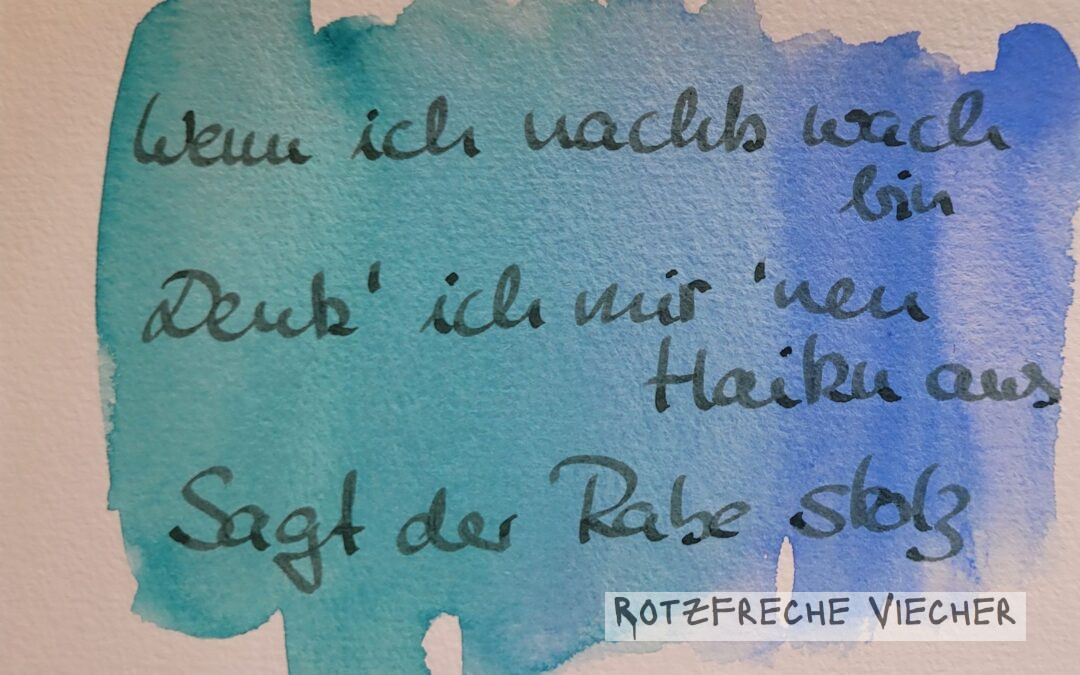 Wenn ich nachts wach
bin
Denk' ich mir 'nen
Haiku aus
Sagt der Rabe stolz
ROTZFRECHE VIECHER